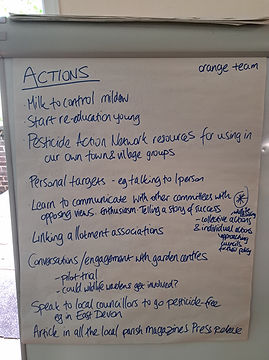 orange team
ACTIONS
Milk to control mildew
Start re-education young
Pesticide Action Network resources for using in
our own town & village groups
Personal targets - eg talking to 1 person
Learn to communicate with other committees with
opposing views. Enthusiasm. Telling a story of success
- collective actions
& individual actions
approaching
councils
Linking allotment associations
Conversations/engagement with garden centres
- pilot trial
- could wildlife wardens get involved?
Speak to local councillors to go pesticide-free
eg in East Devon
Article in all the local parish magazines Press release